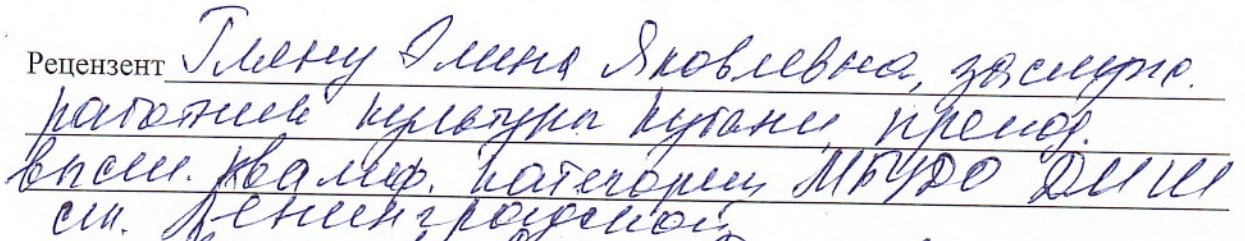 Рецензент Глену Элина Яковлевна, заслуж.
работник культуры Кубани, препод.
высш. квалиф. категории МБУДО ДШИ
ст. Ленинградской